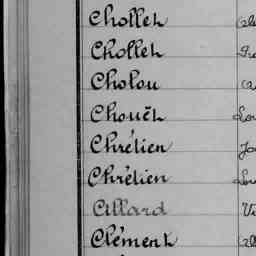 Chollet
Chollet
Cholou
Chouët
Chrétien
Chrétien
Cillard
Clément